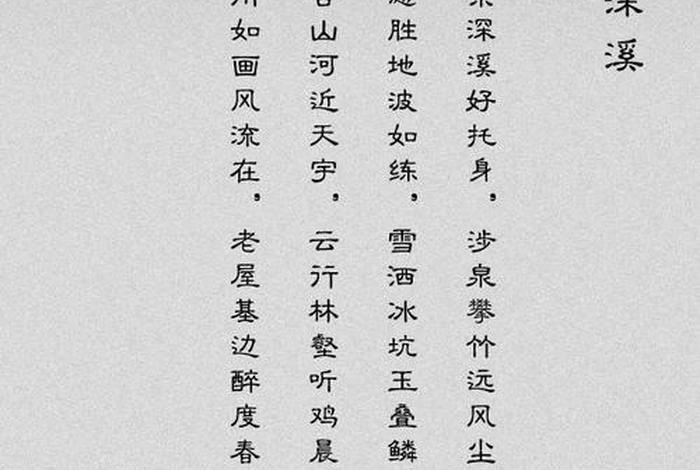 深溪
深溪好托身，涉泉攀竹远风尘
胜地波如练，雪洒冰坑玉叠鳞
山河近天宇，云行林壑听鸡晨
如画风流在，老屋基边醉度春